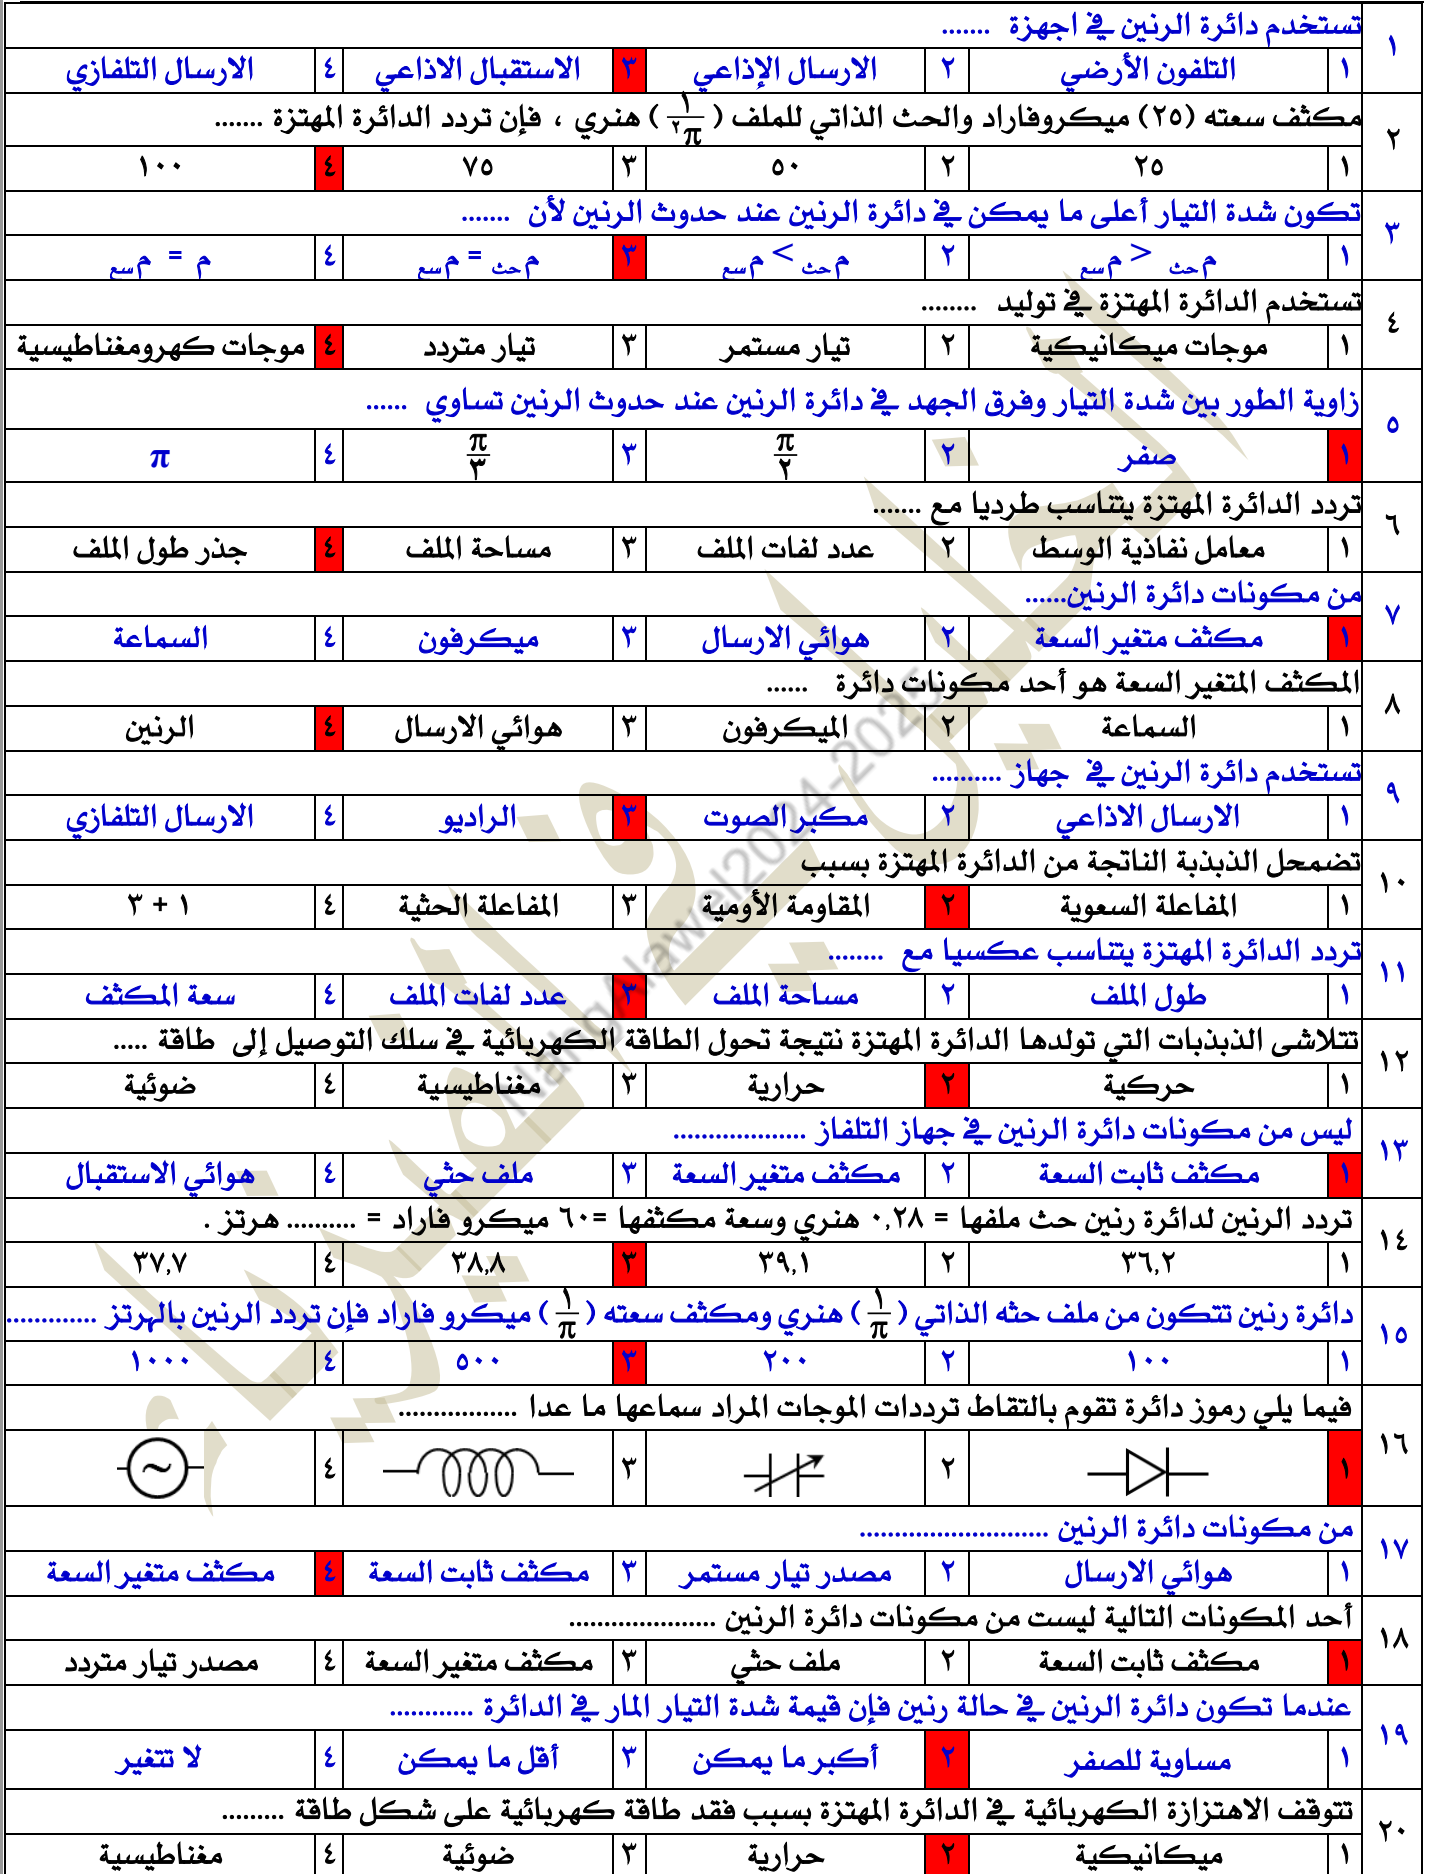 ١ تستخدم دائرة الرنين في اجهزة .......
١ التلفون الأرضي ٢ الارسال الإذاعي ٣ الاستقبال الاذاعي ٤ الارسال التلفازي
٢ مكثف سعته (٢٥) ميكروفاراد والحث الذاتي للملف ( ١/π٢ ) هنري ، فإن تردد الدائرة المهتزة .......
١ ٢٥ ٢ ٥٠ ٣ ٧٥ ٤ ١٠٠
٣ تكون شدة التيار أعلى ما يمكن في دائرة الرنين عند حدوث الرنين لأن .......
١ م حث > م سع ٢ م حث < م سع ٣ م حث = م سع ٤ م = م سع
٤ تستخدم الدائرة المهتزة في توليد ........
١ موجات ميكانيكية ٢ تيار مستمر ٣ تيار متردد ٤ موجات كهرومغناطيسية
٥ زاوية الطور بين شدة التيار وفرق الجهد في دائرة الرنين عند حدوث الرنين تساوي ......
١ صفر ٢ π/٢ ٣ π/٣ ٤ π
٦ تردد الدائرة المهتزة يتناسب طرديا مع .......
١ معامل نفاذية الوسط ٢ عدد لفات الملف ٣ مساحة الملف ٤ جذر طول الملف
٧ من مكونات دائرة الرنين......
١ مكثف متغير السعة ٢ هوائي الارسال ٣ ميكرفون ٤ السماعة
٨ المكثف المتغير السعة هو أحد مكونات دائرة ......
١ السماعة ٢ الميكرفون ٣ هوائي الارسال ٤ الرنين
٩ تستخدم دائرة الرنين في جهاز ..........
١ الارسال الاذاعي ٢ مكبر الصوت ٣ الراديو ٤ الارسال التلفازي
١٠ تضمحل الذبذبة الناتجة من الدائرة المهتزة بسبب
١ المفاعلة السعوية ٢ المقاومة الأومية ٣ المفاعلة الحثية ٤ ١ + ٣
١١ تردد الدائرة المهتزة يتناسب عكسيا مع ........
١ طول الملف ٢ مساحة الملف ٣ عدد لفات الملف ٤ سعة المكثف
١٢ تتلاشى الذبذبات التي تولدها الدائرة المهتزة نتيجة تحول الطاقة الكهربائية في سلك التوصيل إلى طاقة .....
١ حركية ٢ حرارية ٣ مغناطيسية ٤ ضوئية
١٣ ليس من مكونات دائرة الرنين في جهاز التلفاز ...................
١ مكثف ثابت السعة ٢ مكثف متغير السعة ٣ ملف حثي ٤ هوائي الاستقبال
١٤ تردد الرنين لدائرة رنين حث ملفها = ٠,٢٨ هنري وسعة مكثفها =٦٠ ميكرو فاراد = .......... هرتز .
١ ٣٦,٢ ٢ ٣٩,١ ٣ ٣٨,٨ ٤ ٣٧,٧
١٥ دائرة رنين تتكون من ملف حثه الذاتي ( ١/π ) هنري ومكثف سعته ( ١/π ) ميكرو فاراد فإن تردد الرنين بالهرتز .............
١ ١٠٠ ٢ ٢٠٠ ٣ ٥٠٠ ٤ ١٠٠٠
١٦ فيما يلي رموز دائرة تقوم بالتقاط ترددات الموجات المراد سماعها ما عدا .................
١ ٢ ٣ ٤
١٧ من مكونات دائرة الرنين ...........................
١ هوائي الارسال ٢ مصدر تيار مستمر ٣ مكثف ثابت السعة ٤ مكثف متغير السعة
١٨ أحد المكونات التالية ليست من مكونات دائرة الرنين .....................
١ مكثف ثابت السعة ٢ ملف حثي ٣ مكثف متغير السعة ٤ مصدر تيار متردد
١٩ عندما تكون دائرة الرنين في حالة رنين فإن قيمة شدة التيار المار في الدائرة ............
١ مساوية للصفر ٢ أكبر ما يمكن ٣ أقل ما يمكن ٤ لا تتغير
٢٠ تتوقف الاهتزازة الكهربائية في الدائرة المهتزة بسبب فقد طاقة كهربائية على شكل طاقة .........
١ ميكانيكية ٢ حرارية ٣ ضوئية ٤ مغناطيسية